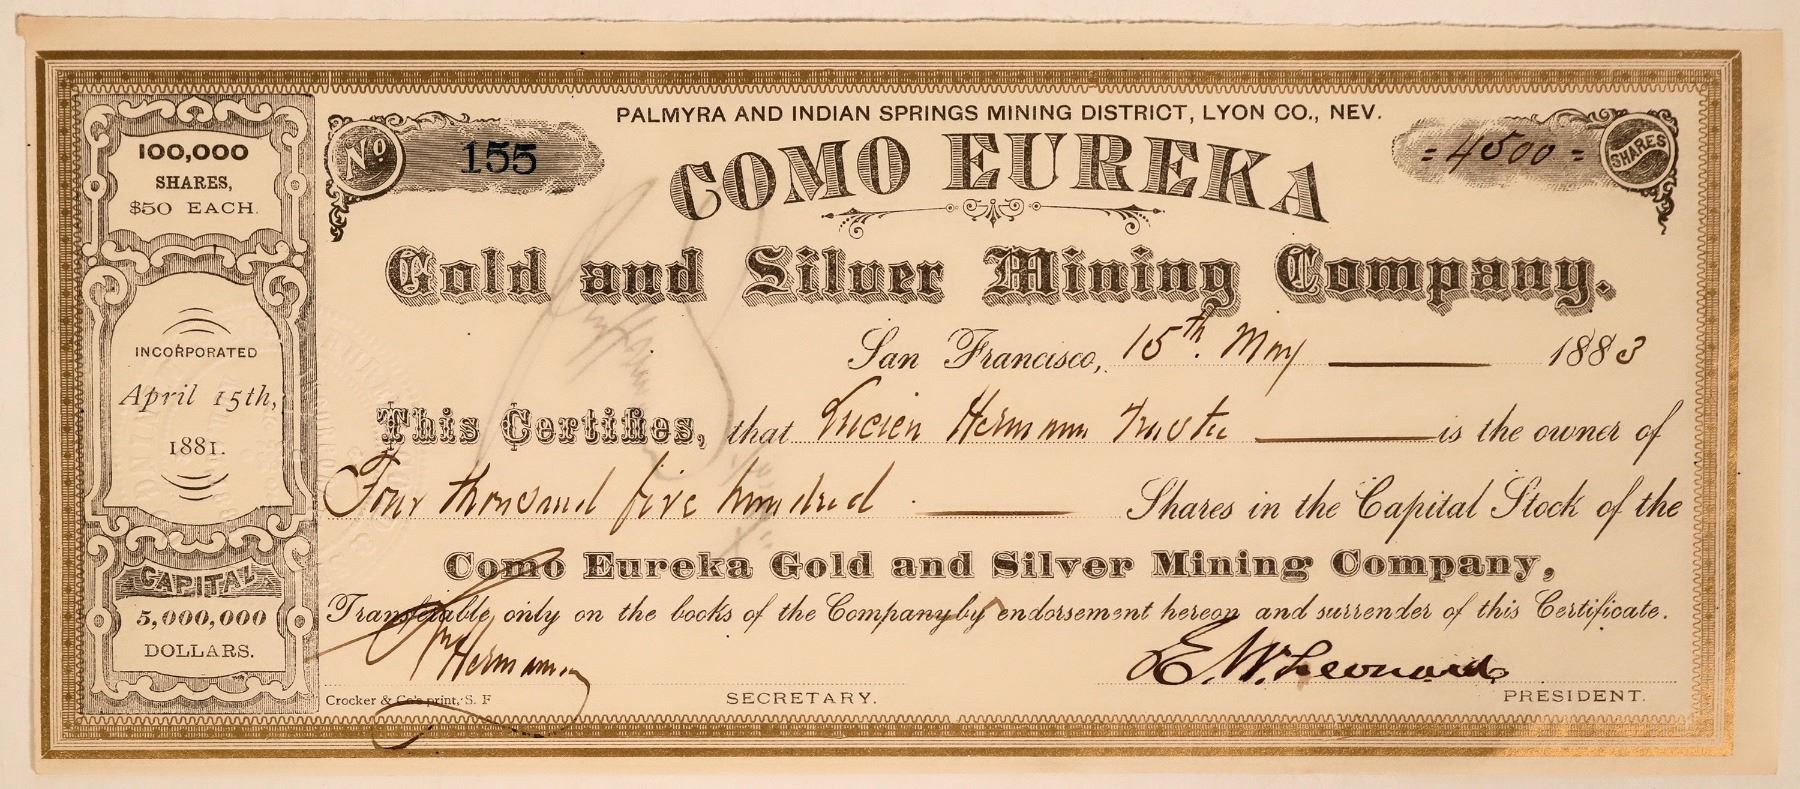 PALMYRA AND INDIAN SPRINGS MINING DISTRICT, LYON CO., NEV.
No 155
= 4500 = SHARES
COMO EUREKA
Gold and Silver Mining Company.
100,000
SHARES,
$50 EACH.
INCORPORATED
April 15th,
1881.
CAPITAL
5,000,000
DOLLARS.
San Francisco, 15th. May 1883
This Certifies, that Lucien Hermann Trustee is the owner of
Four thousand five hundred Shares in the Capital Stock of the
Como Eureka Gold and Silver Mining Company,
Transferable only on the books of the Company by endorsement hereon and surrender of this Certificate.
Hermann
E. W. Leonard
SECRETARY.
PRESIDENT.
Crocker & Co's print, S. F